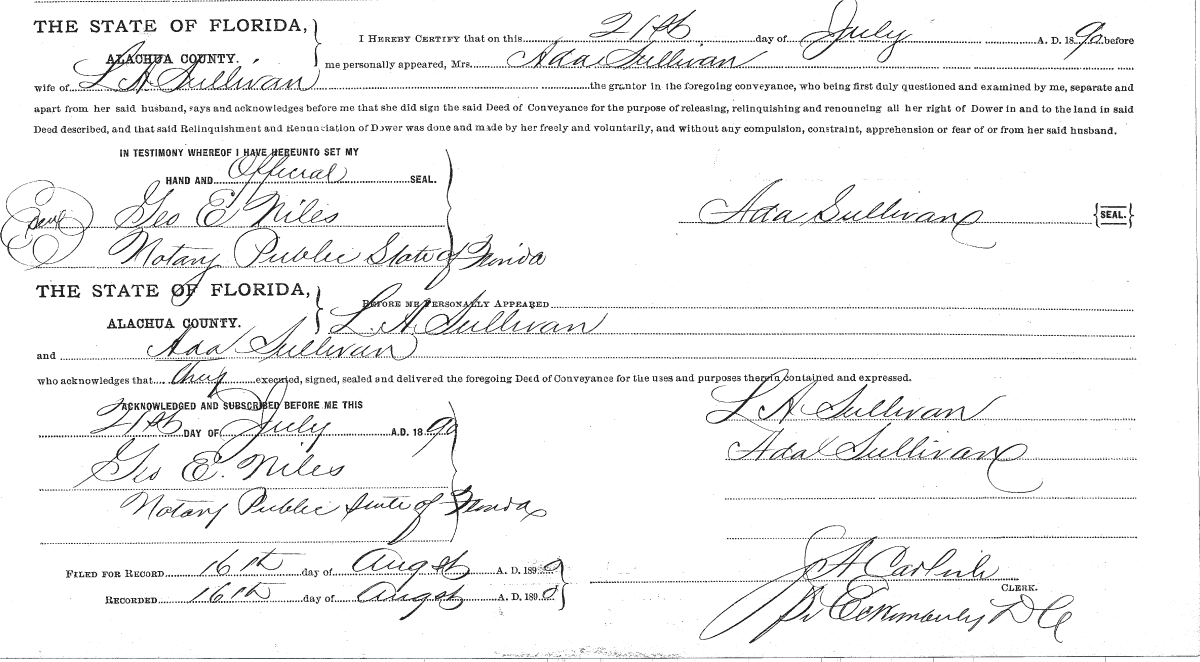 THE STATE OF FLORIDA,
ALACHUA COUNTY.
I HEREBY CERTIFY that on this 21st day of July A. D. 1890 before
me personally appeared, Mrs. Ada Sullivan
wife of L A Sullivan the grantor in the foregoing conveyance, who being first duly questioned and examined by me, separate and
apart from her said husband, says and acknowledges before me that she did sign the said Deed of Conveyance for the purpose of releasing, relinquishing and renouncing all her right of Dower in and to the land in said
Deed described, and that said Relinquishment and Renunciation of Dower was done and made by her freely and voluntarily, and without any compulsion, constraint, apprehension or fear of or from her said husband.
IN TESTIMONY WHEREOF I HAVE HEREUNTO SET MY
HAND AND Official SEAL.
Seal Geo E Niles
Ada Sullivan {SEAL.}
Notary Public State of Florida
THE STATE OF FLORIDA,
ALACHUA COUNTY.
BEFORE ME PERSONALLY APPEARED
L. A. Sullivan
and Ada Sullivan
who acknowledges that they executed, signed, sealed and delivered the foregoing Deed of Conveyance for the uses and purposes therein contained and expressed.
ACKNOWLEDGED AND SUBSCRIBED BEFORE ME THIS
21st DAY OF July A.D. 1890
L A Sullivan
Geo E. Niles
Ada Sullivan
Notary Public State of Florida
FILED FOR RECORD 16th day of Augst A. D. 1890
RECORDED 16th day of Augst A. D. 1890
J A Carlisle
CLERK.
D C